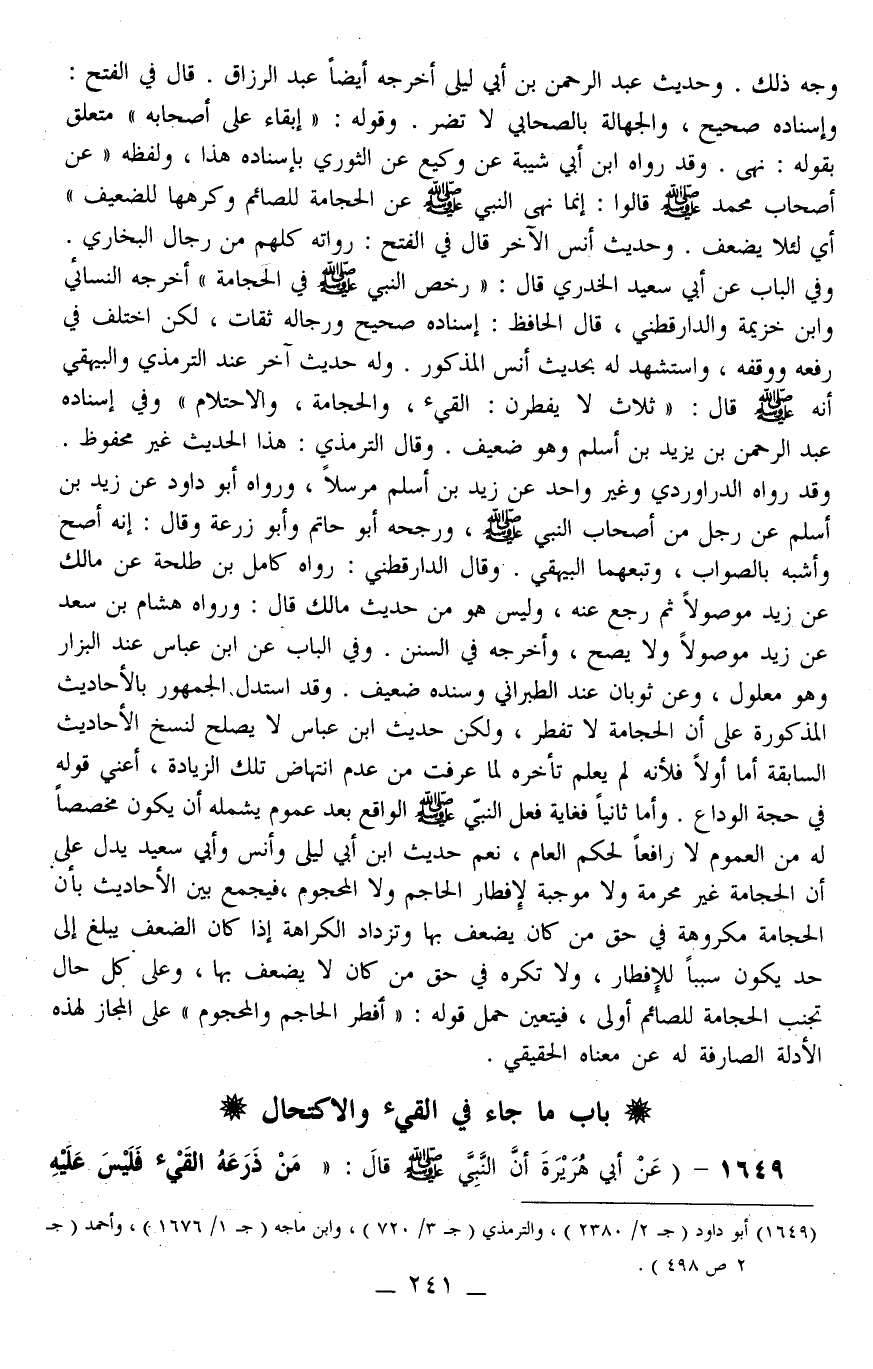 وجه ذلك . وحديث عبد الرحمن بن أبي ليلى أخرجه أيضاً عبد الرزاق . قال في الفتح :
وإسناده صحيح ، والجهالة بالصحابي لا تضر . وقوله : « إبقاء على أصحابه » متعلق
بقوله : نهى . وقد رواه ابن أبي شيبة عن وكيع عن الثوري بإسناده هذا ، ولفظه « عن
أصحاب محمد ﷺ قالوا : إنما نهى النبي ﷺ عن الحجامة للصائم وكرهها للضعيف »
أي لئلا يضعف . وحديث أنس الآخر قال في الفتح : رواته كلهم من رجال البخاري .
وفي الباب عن أبي سعيد الخدري قال : « رخص النبي ﷺ في الحجامة » أخرجه النسائي
وابن خزيمة والدارقطني ، قال الحافظ : إسناده صحيح ورجاله ثقات ، لكن اختلف في
رفعه ووقفه ، واستشهد له بحديث أنس المذكور . وله حديث آخر عند الترمذي والبيهقي
أنه ﷺ قال : « ثلاث لا يفطرن : القيء ، والحجامة ، والاحتلام » وفي إسناده
عبد الرحمن بن يزيد بن أسلم وهو ضعيف . وقال الترمذي : هذا الحديث غير محفوظ .
وقد رواه الدراوردي وغير واحد عن زيد بن أسلم مرسلاً ، ورواه أبو داود عن زيد بن
أسلم عن رجل من أصحاب النبي ﷺ ، ورجحه أبو حاتم وأبو زرعة وقال : إنه أصح
وأشبه بالصواب ، وتبعهما البيهقي . وقال الدارقطني : رواه كامل بن طلحة عن مالك
عن زيد موصولاً ثم رجع عنه ، وليس هو من حديث مالك قال : ورواه هشام بن سعد
عن زيد موصولاً ولا يصح ، وأخرجه في السنن . وفي الباب عن ابن عباس عند البزار
وهو معلول ، وعن ثوبان عند الطبراني وسنده ضعيف . وقد استدل الجمهور بالأحاديث
المذكورة على أن الحجامة لا تفطر ، ولكن حديث ابن عباس لا يصلح لنسخ الأحاديث
السابقة أما أولاً فلأنه لم يعلم تأخره لما عرفت من عدم انتهاض تلك الزيادة ، أعني قوله
في حجة الوداع . وأما ثانياً فغاية فعل النبيّ ﷺ الواقع بعد عموم يشمله أن يكون مخصصاً
له من العموم لا رافعاً لحكم العام ، نعم حديث ابن أبي ليلى وأنس وأبي سعيد يدل على
أن الحجامة غير محرمة ولا موجبة لإفطار الحاجم ولا المحجوم ،فيجمع بين الأحاديث بأن
الحجامة مكروهة في حق من كان يضعف بها وتزداد الكراهة إذا كان الضعف يبلغ إلى
حد يكون سبباً للإفطار ، ولا تكره في حق من كان لا يضعف بها ، وعلى كل حال
تجنب الحجامة للصائم أولى ، فيتعين حمل قوله : « أفطر الحاجم والمحجوم » على المجاز لهذه
الأدلة الصارفة له عن معناه الحقيقي .
✹ باب ما جاء في القيء والاكتحال ✹
١٦٤٩ - ( عَنْ أبي هُرَيْرَةَ أنَّ النَّبِيَّ ﷺ قالَ : « مَنْ ذَرَعَهُ القَيْء فَلَيْسَ عَلَيْهِ
(١٦٤٩) أبو داود ( جـ ٢/ ٢٣٨٠ ) ، والترمذي ( جـ ٣/ ٧٢٠ ) ، وابن ماجه ( جـ ١/ ١٦٧٦ ) ، وأحمد ( جـ
٢ ص ٤٩٨ ) .
— ٢٤١ —